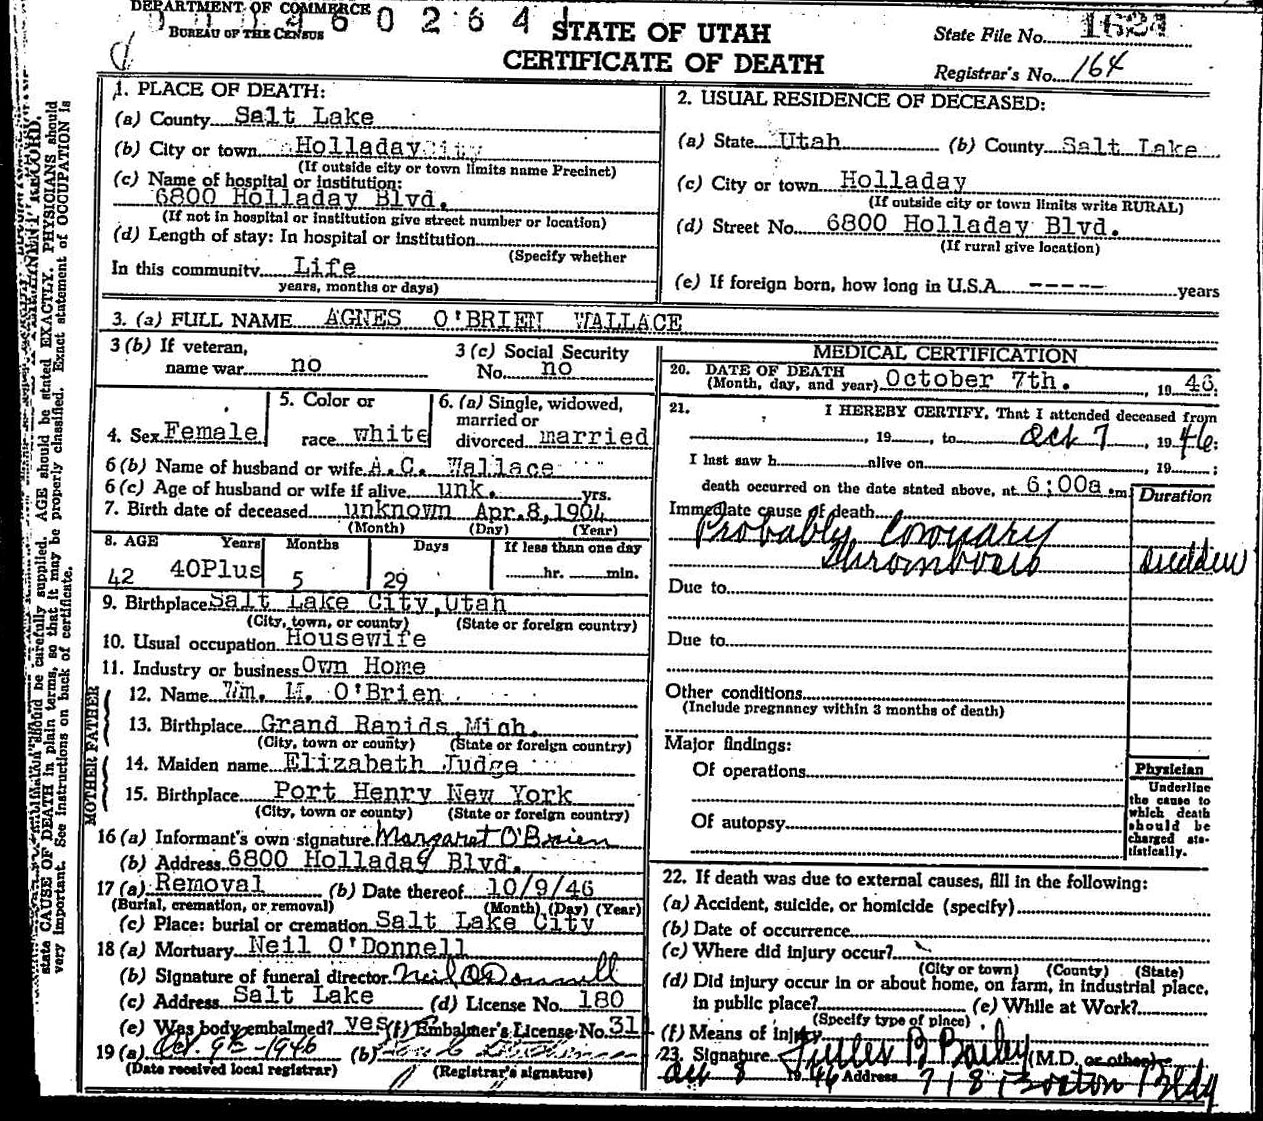 DEPARTMENT OF COMMERCE
BUREAU OF THE CENSUS
STATE OF UTAH
CERTIFICATE OF DEATH
State File No. 1624
Registrar's No. 164
1. PLACE OF DEATH:
(a) County Salt Lake
(b) City or town Holladay City
(If outside city or town limits name Precinct)
(c) Name of hospital or institution:
6800 Holladay Blvd.
(If not in hospital or institution give street number or location)
(d) Length of stay: In hospital or institution
(Specify whether
In this community Life
years, months or days)
2. USUAL RESIDENCE OF DECEASED:
(a) State Utah (b) County Salt Lake
(c) City or town Holladay
(If outside city or town limits write RURAL)
(d) Street No. 6800 Holladay Blvd.
(If rural give location)
(e) If foreign born, how long in U.S.A. ----- years
3. (a) FULL NAME AGNES O'BRIEN WALLACE
3 (b) If veteran, name war no
3 (c) Social Security No. no
4. Sex Female
5. Color or race white
6. (a) Single, widowed, married or divorced married
6 (b) Name of husband or wife A.C. Wallace
6 (c) Age of husband or wife if alive unk. yrs.
7. Birth date of deceased unknown Apr.8,1904
(Month) (Day) (Year)
8. AGE Years Months Days If less than one day
42 40Plus 5 29 hr. min.
9. Birthplace Salt Lake City,Utah
(City, town, or county) (State or foreign country)
10. Usual occupation Housewife
11. Industry or business Own Home
FATHER
12. Name Wm. M. O'Brien
13. Birthplace Grand Rapids,Mich.
(City, town or county) (State or foreign country)
MOTHER
14. Maiden name Elizabeth Judge
15. Birthplace Port Henry New York
(City, town or county) (State or foreign country)
16 (a) Informant's own signature Margaret O'Brien
(b) Address 6800 Holladay Blvd.
17 (a) Removal (b) Date thereof 10/9/46
(Burial, cremation, or removal) (Month) (Day) (Year)
(c) Place: burial or cremation Salt Lake City
18 (a) Mortuary Neil O'Donnell
(b) Signature of funeral director Neil O'Donnell
(c) Address Salt Lake (d) License No. 180
(e) Was body embalmed? yes (f) Embalmer's License No. 311
19 (a) Oct. 9th-1946 (b)
(Date received local registrar) (Registrar's signature)
MEDICAL CERTIFICATION
20. DATE OF DEATH
(Month, day, and year) October 7th. 19 46.
21. I HEREBY CERTIFY, That I attended deceased from
, 19 , to Oct 7 , 19 46;
I last saw h alive on , 19 ;
death occurred on the date stated above, at 6;00a .m.
Duration
Immediate cause of death
Probably Coronary
Thrombosis sudden
Due to
Due to
Other conditions
(Include pregnancy within 3 months of death)
Major findings:
Of operations
Of autopsy
Physician
Underline the cause to which death should be charged statistically.
22. If death was due to external causes, fill in the following:
(a) Accident, suicide, or homicide (specify)
(b) Date of occurrence
(c) Where did injury occur?
(City or town) (County) (State)
(d) Did injury occur in or about home, on farm, in industrial place,
in public place? (e) While at Work?
(Specify type of place)
(f) Means of injury
23. Signature Fuller B Bailey (M.D. or other)
Oct 8 1946 Address 718 Boston Bldg
state CAUSE OF DEATH in plain terms, so that it may be properly classified. Exact statement of OCCUPATION is
very important. See instructions on back of certificate.